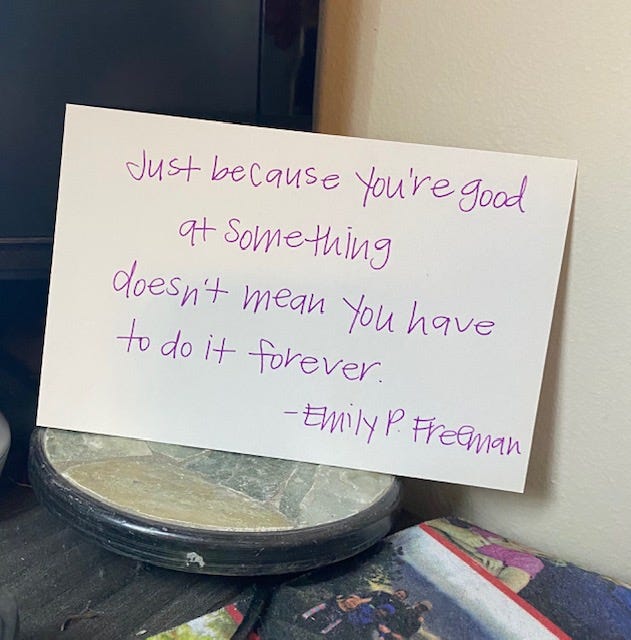 Just because you're good
at something
doesn't mean you have
to do it forever.
-Emily P. Freeman